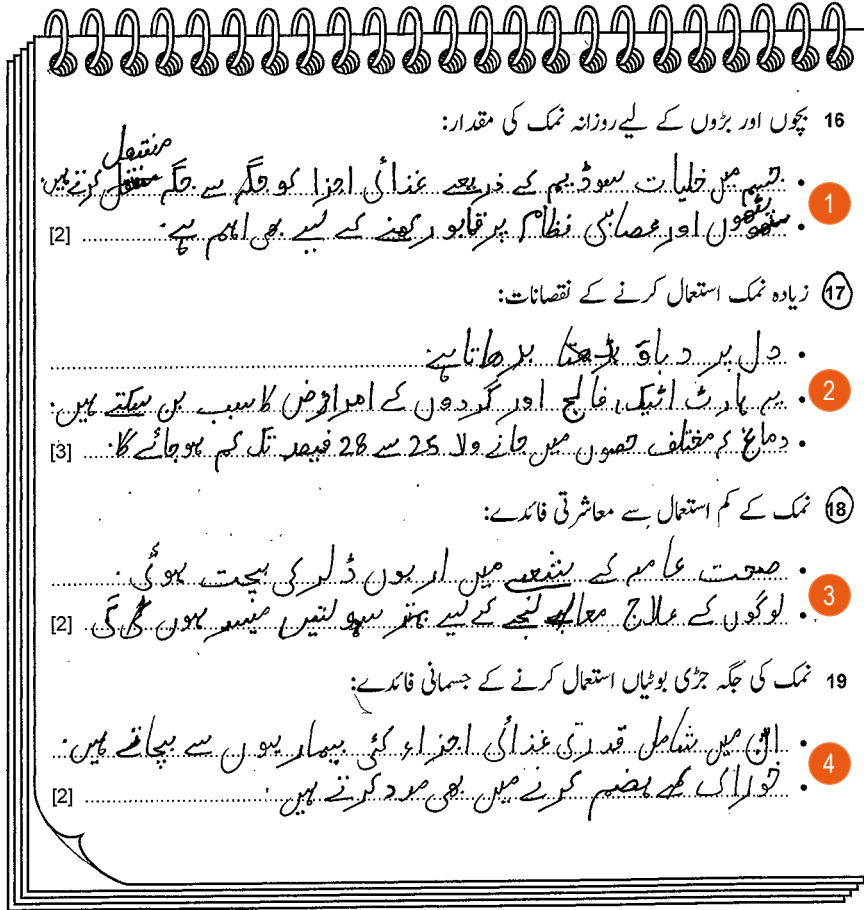 16 بچوں اور بڑوں کے لیے روزانہ نمک کی مقدار:
منتقل
• جسم میں خلیات سوڈیم کے ذریعے غذائی اجزا کو جگہ سے جگہ منتقل کرتے ہیں.
1
• پٹھوں اور عصابی نظام پر قابو رکھنے کے لیے بھی اہم ہے. [2]
17 زیادہ نمک استعمال کرنے کے نقصانات:
• دل پر دباؤ بڑھتا بڑھاتا ہے
2
• یہ ہارٹ اٹیک، فالج اور گردوں کے امراض کا سبب بن سکتے ہیں.
• دماغ کہ مختلف حصوں میں جانے ولا 25 سے 28 فیصد تک کم ہوجائے گا. [3]
18 نمک کے کم استعمال سے معاشرتی فائدے:
• صحت عامہ کے شعبے میں اربوں ڈلر کی بچت ہوئی.
3
• لوگوں کے علاج معالجے کے لیے بہتر سہولتیں میسر ہوں گی [2]
19 نمک کی جگہ جڑی بوٹیاں استعمال کرنے کے جسمانی فائدے:
• ان میں شامل قدرتی غذائی اجزاء کئی بیماریوں سے بچاتے ہیں.
4
• خوراک ہضم کرنے میں بھی مدد کرتے ہیں. [2]